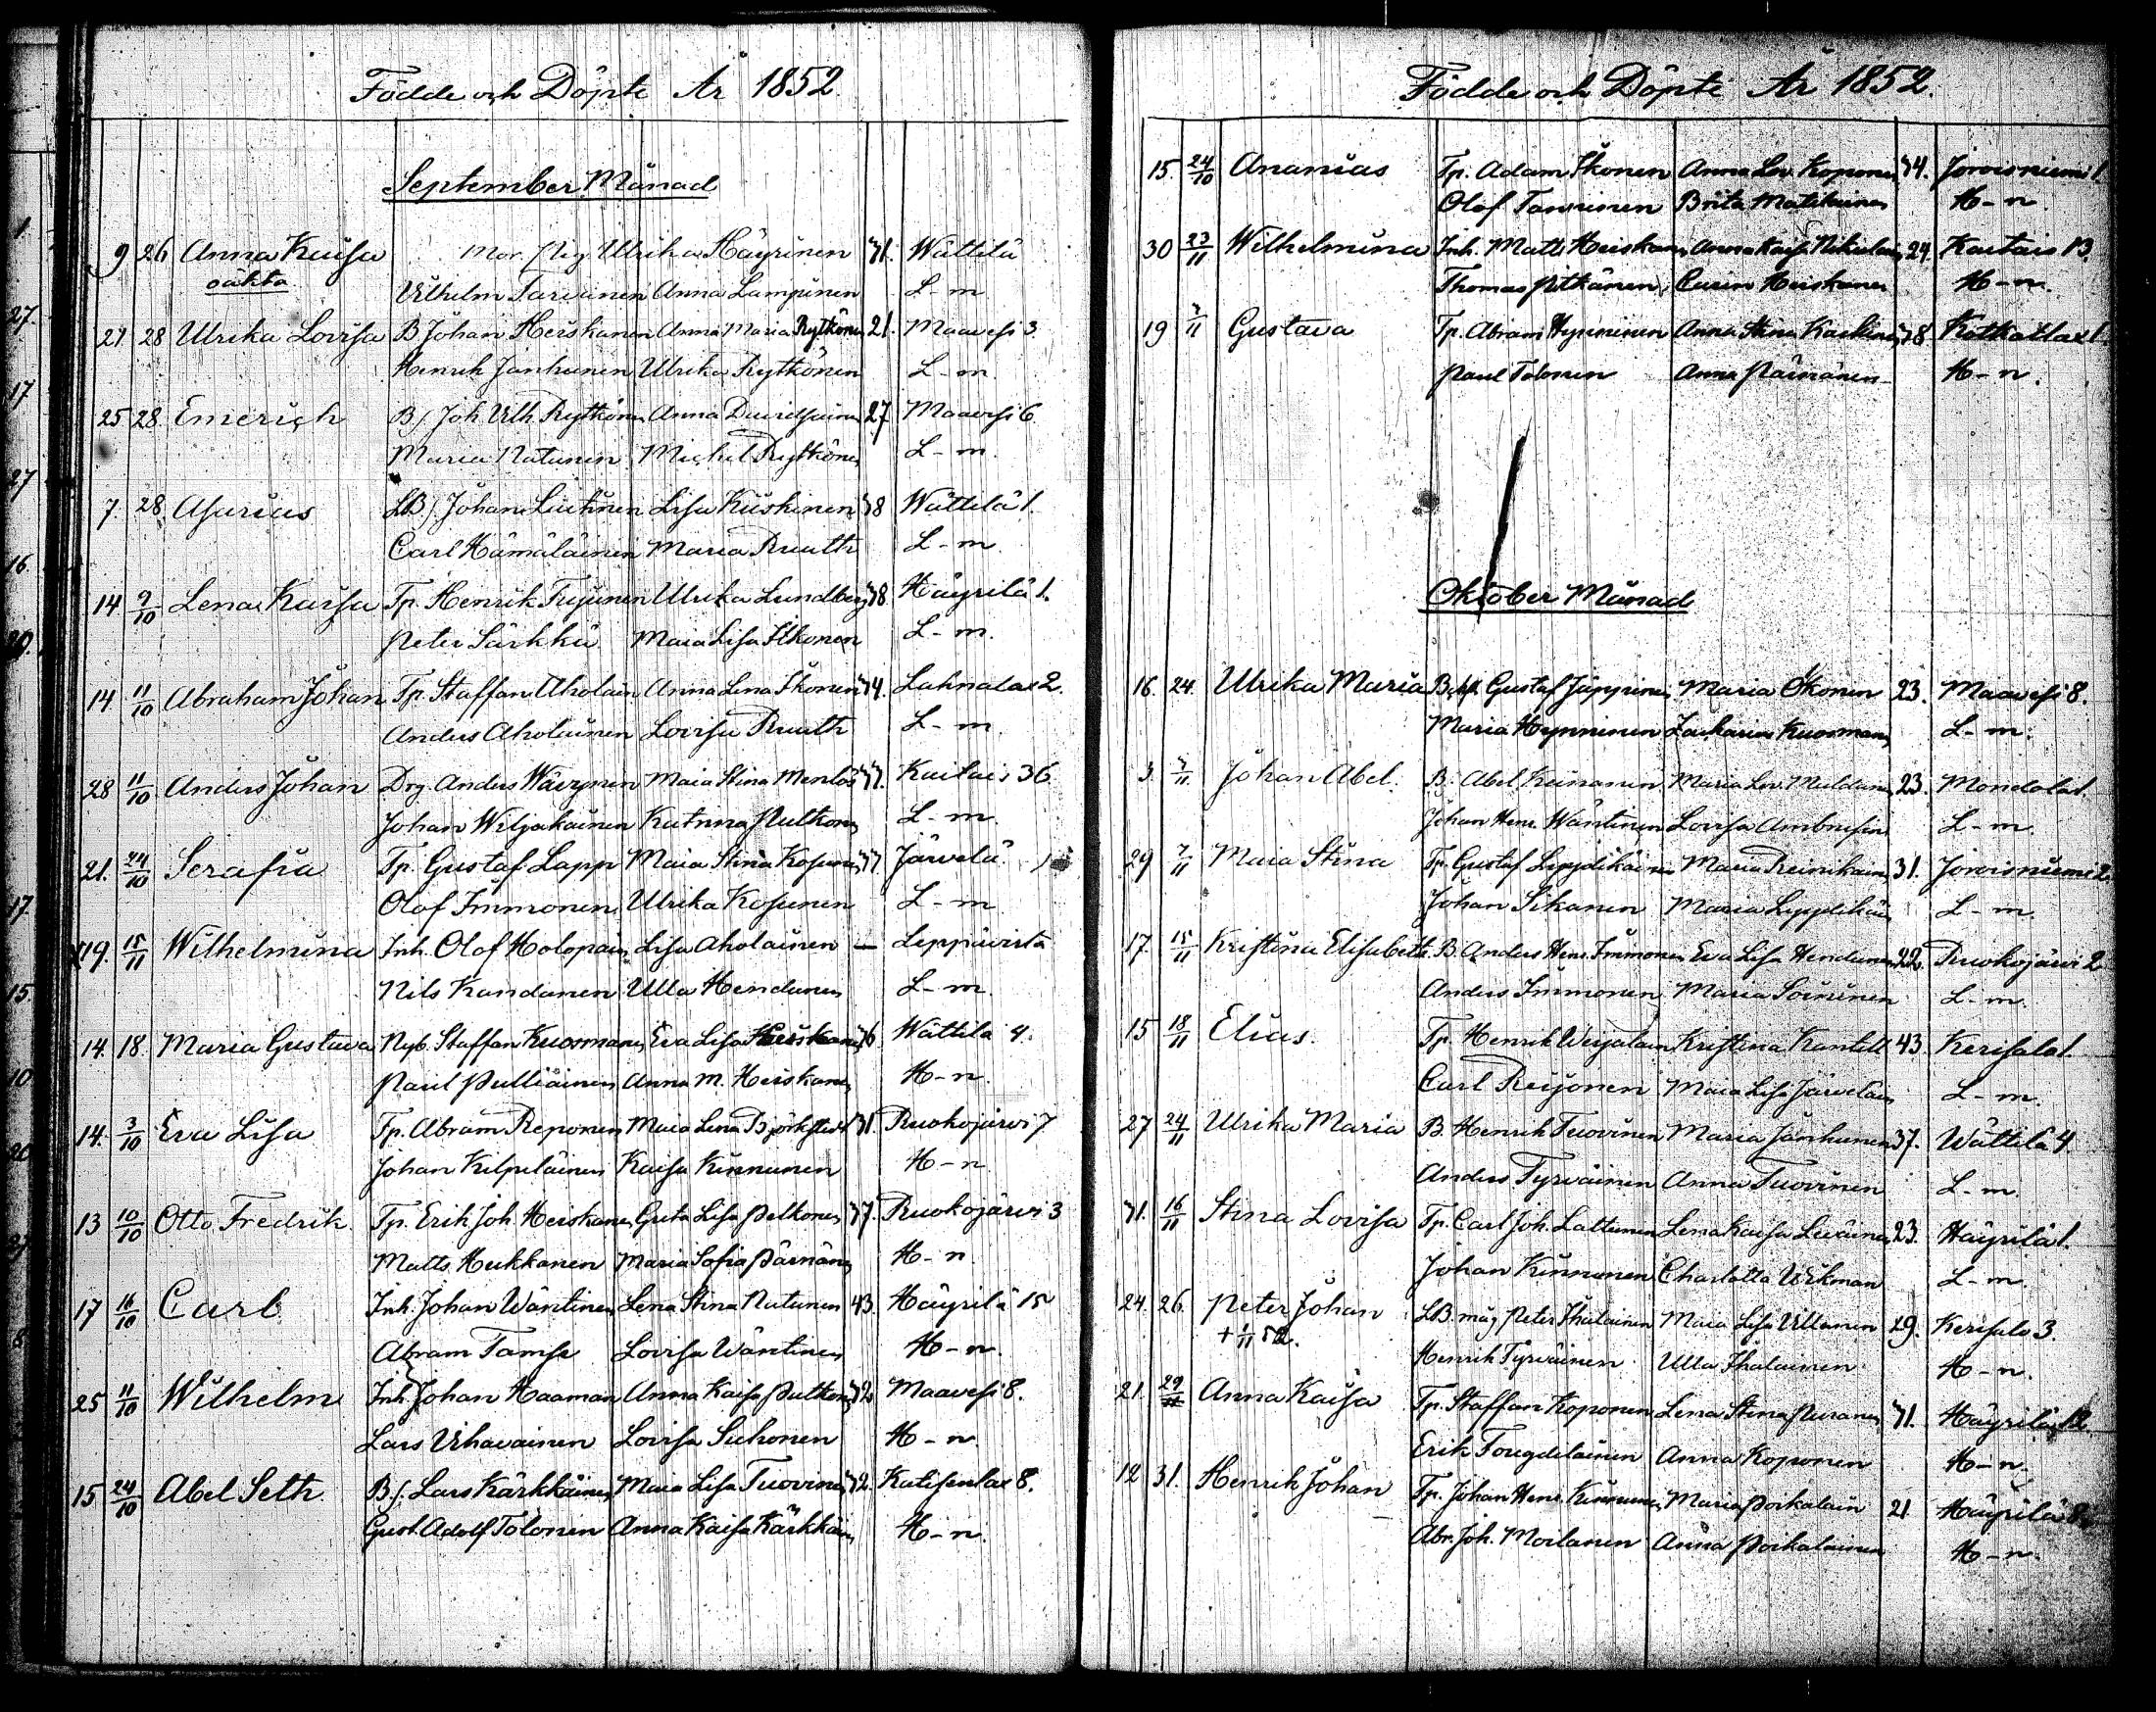 Födde och Döpte År 1852
September Månad
9 26 Anna Kaisa Mor. Pig. Ulrika Häyrinen 31. Wättilä
oäkta Wilhelm Tarvainen Anna Lampinen L-m
21 28 Ulrika Lovisa B Johan Heiskanen Anna Maria Rytkönen 21. Maavesi 3
Henrik Janhunen Ulrika Rytkönen L-m.
25 28 Emerich B/ Joh. Vilh. Rytkönen Anna Davidsainen 27 Maavesi 6
Maria Natunen Michel Rytkönen L-m.
7. 28 Asarias LB/. Johan Liutunen Lisa Kiiskinen 38 Wättilä 1.
Carl Hämäläinen Maria Ruuth L-m.
14 9/10 Lena Kaisa Tp. Henrik Ulrika Lundberg 38 Häyrilä 1.
Peter Särkkä Maia Lisa Itkonen L-m.
14 11/10 Abraham Johan Tp. Staffan Aholain Anna Lena Ikonen 34. Lahnalax 2.
Anders Aholainen Lovisa Ruuth L-m
28 11/10 Anders Johan Drg. Anders Wäyrynen Maia Stina 37. Kaitais 36
Johan Wiljakainen Katrina Pulkonen L-m.
21. 24/10 Serafia Tp. Gustaf Lapp Maia Stina Kosunen 37 Järvelä
Olof Immonen Ulrika Kosunen L-m
19. 15/11 Wilhelmina Inh. Olof Holopain Lisa Aholainen — Leppävirta
Nils Kandanen Ulla Hendunen L-m.
14. 18. Maria Gustava Nyb. Staffan Kuosmanen Eva Lisa Heiskanen 36 Wättilä 4.
Paul Pulliainen Anna M. Heiskanen H-n.
14. 3/10 Eva Lisa Tp. Abram Reponen Maia Lena Björkstedt 31. Ruokojärvi 7
Johan Kilpeläinen Kaisa Kinnunen H-n.
13 10/10 Otto Fredrik. Tp. Erik Joh. Heiskanen Greta Lisa Pelkonen 37. Ruokojärvi 3
Matts Hukkanen Maria Sofia Pärnänen H-n
17 16/10 Carl Inh. Johan Wäntinen Lena Stina Natunen 43. Häyrilä 15
Abram Tamse Lovisa Wäntinen H-n.
25 11/10 Wilhelm Inh. Johan Haaman Anna Kaisa Pulkonen 32 Maavesi 8.
Lars Vihavainen Lovisa Suhonen H-n.
15 24/10 Abel Seth B/. Lars Kärkkäinen Maia Lisa Tuovinen 32. Katisenlax 8.
Gust. Adolf Tolonen Anna Kaisa Kärkkäin H-n.
Födde och Döpte År 1852.
15. 24/10 Ananias Tp. Adam Ikonen Anna Lov. Koponen 34. Joroisniemi 1.
Olof Tanninen Brita Matilainen H-n.
30 23/11 Wilhelmina Inh. Matts Heiskanen Anna Kaisa Nikulain 24. Kaitais 13.
Thomas Pitkänen Carin Heiskanen H-n.
19 7/11 Gustava Tp. Abram Hynninen Anna Stina Kaskinen 38 Kotkatlax 1.
Paul Tolonen Anna Päivänen H-n.
Oktober Månad
16. 24. Ulrika Maria Gustaf Jäppinen Maria Okonen 23. Maavesi 8.
Maria Hynninen Zacharias Kuosmanen L-m.
3. 7/11. Johan Abel. B. Abel Keinanen Maria Lov. Muldanen 23. Mondola 1.
Johan Henr. Wäntinen Lovisa Ambrusin L-m.
29 7/11 Maia Stina Tp. Gustaf Lyydikäinen Maria Reinikain 31. Joroisniemi 2.
Johan Sikanen Maria Lyydikäin L-m.
17. 15/11 Kristina Elisabeth B. Anders Henr. Immonen Eva Lisa Hendunen 22. Ruokojärvi 2
Anders Immonen Maria Soininen L-m.
15 18/11 Elias. Tp. Henrik Weijalain Kristina Kantell 43. Kerisalo 1.
Carl Reijonen Maia Lisa Järveläin L-m.
27 24/11 Ulrika Maria B. Henrik Tuovinen Maria Janhunen 37. Wättilä 4.
Anders Tyrväinen Anna Tuovinen L-m.
31. 16/11 Stina Lovisa Tp. Carl Joh. Lattunen Lena Kaisa Leväinen 23. Häyrilä 1.
Johan Kinnunen Charlotta Wikman L-m.
24. 26. Peter Johan LB. måg Peter Ihalainen Maia Lisa Ullanen 29. Kerisalo 3
+ 1/11 52. Henrik Tyrväinen Ulla Ihalainen H-n.
21. 29 Anna Kaisa Tp. Staffan Koponen Lena Stina Puranen 31. Häyrilä 12.
Erik Tougdelainen Anna Koponen H-n.
12 31. Henrik Johan Tp. Johan Henr. Kinnunen Maria Poikalain 21 Häyrilä 8.
Abr. Joh. Moilanen Anna Poikalainen H-n.